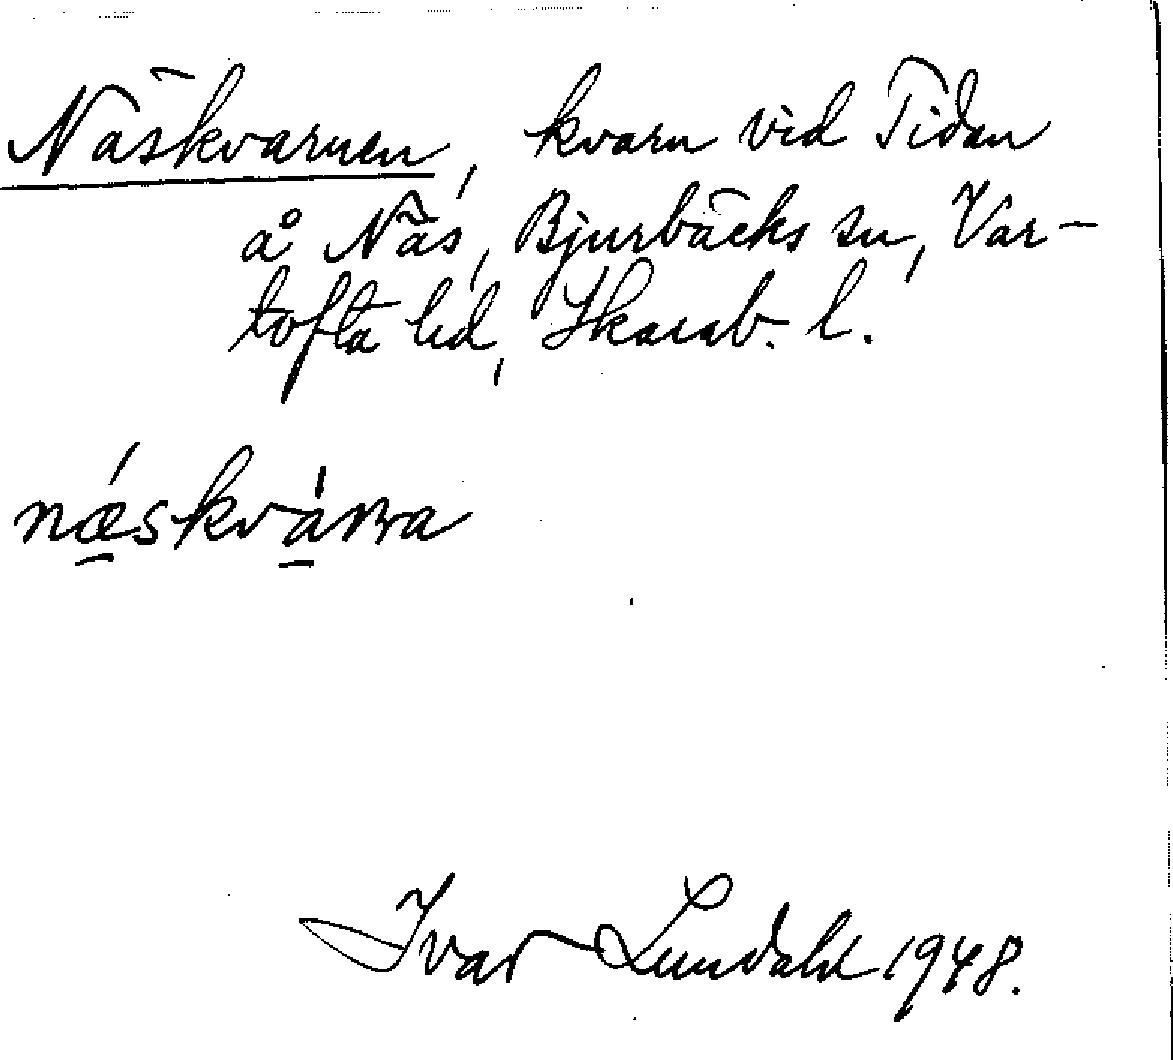 Näskvarnen, kvarn vid Tidan
å Näs, Bjurbäcks sn, Var-
tofta hd, Skarab. l.
næskvaʀna
Ivar Lundahl 1948.